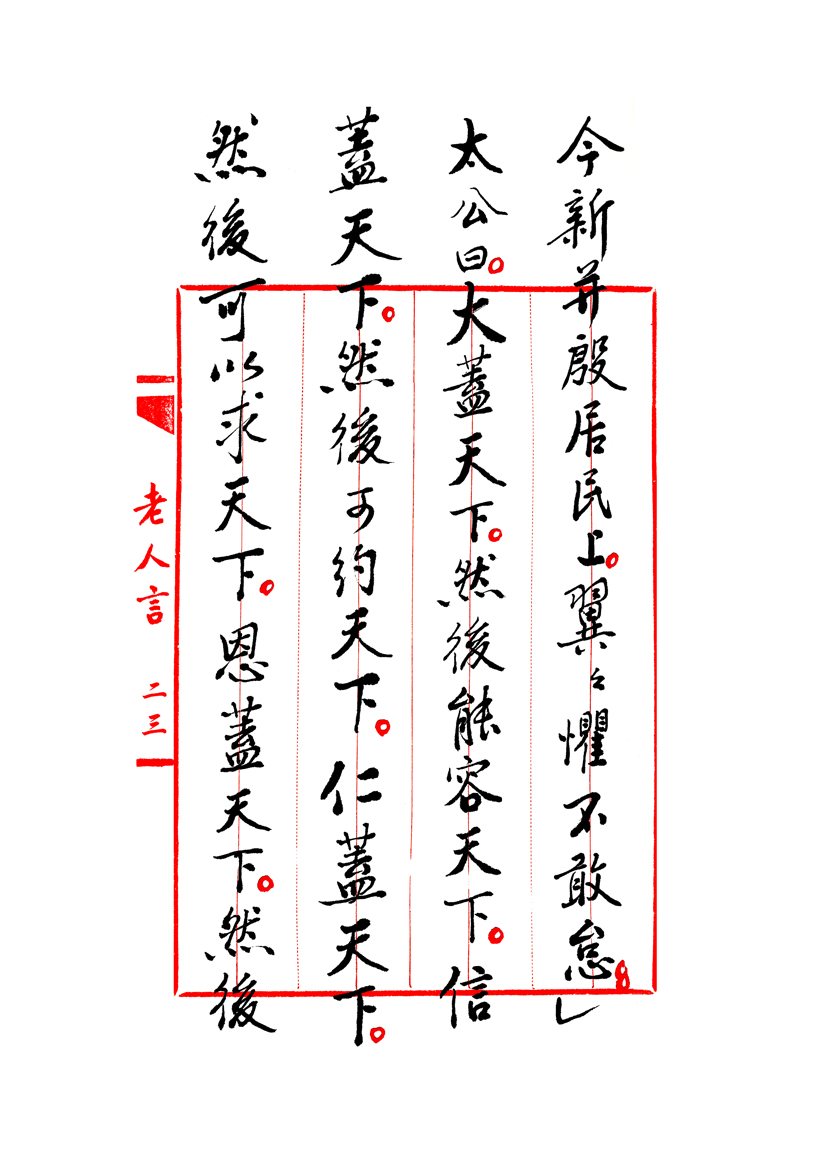 今新并殷居民上。翼々懼不敢怠。」
太公曰。大蓋天下。然後能容天下。信
蓋天下。然後可約天下。仁蓋天下。
然後可以求天下。恩蓋天下。然後
老人言 二三